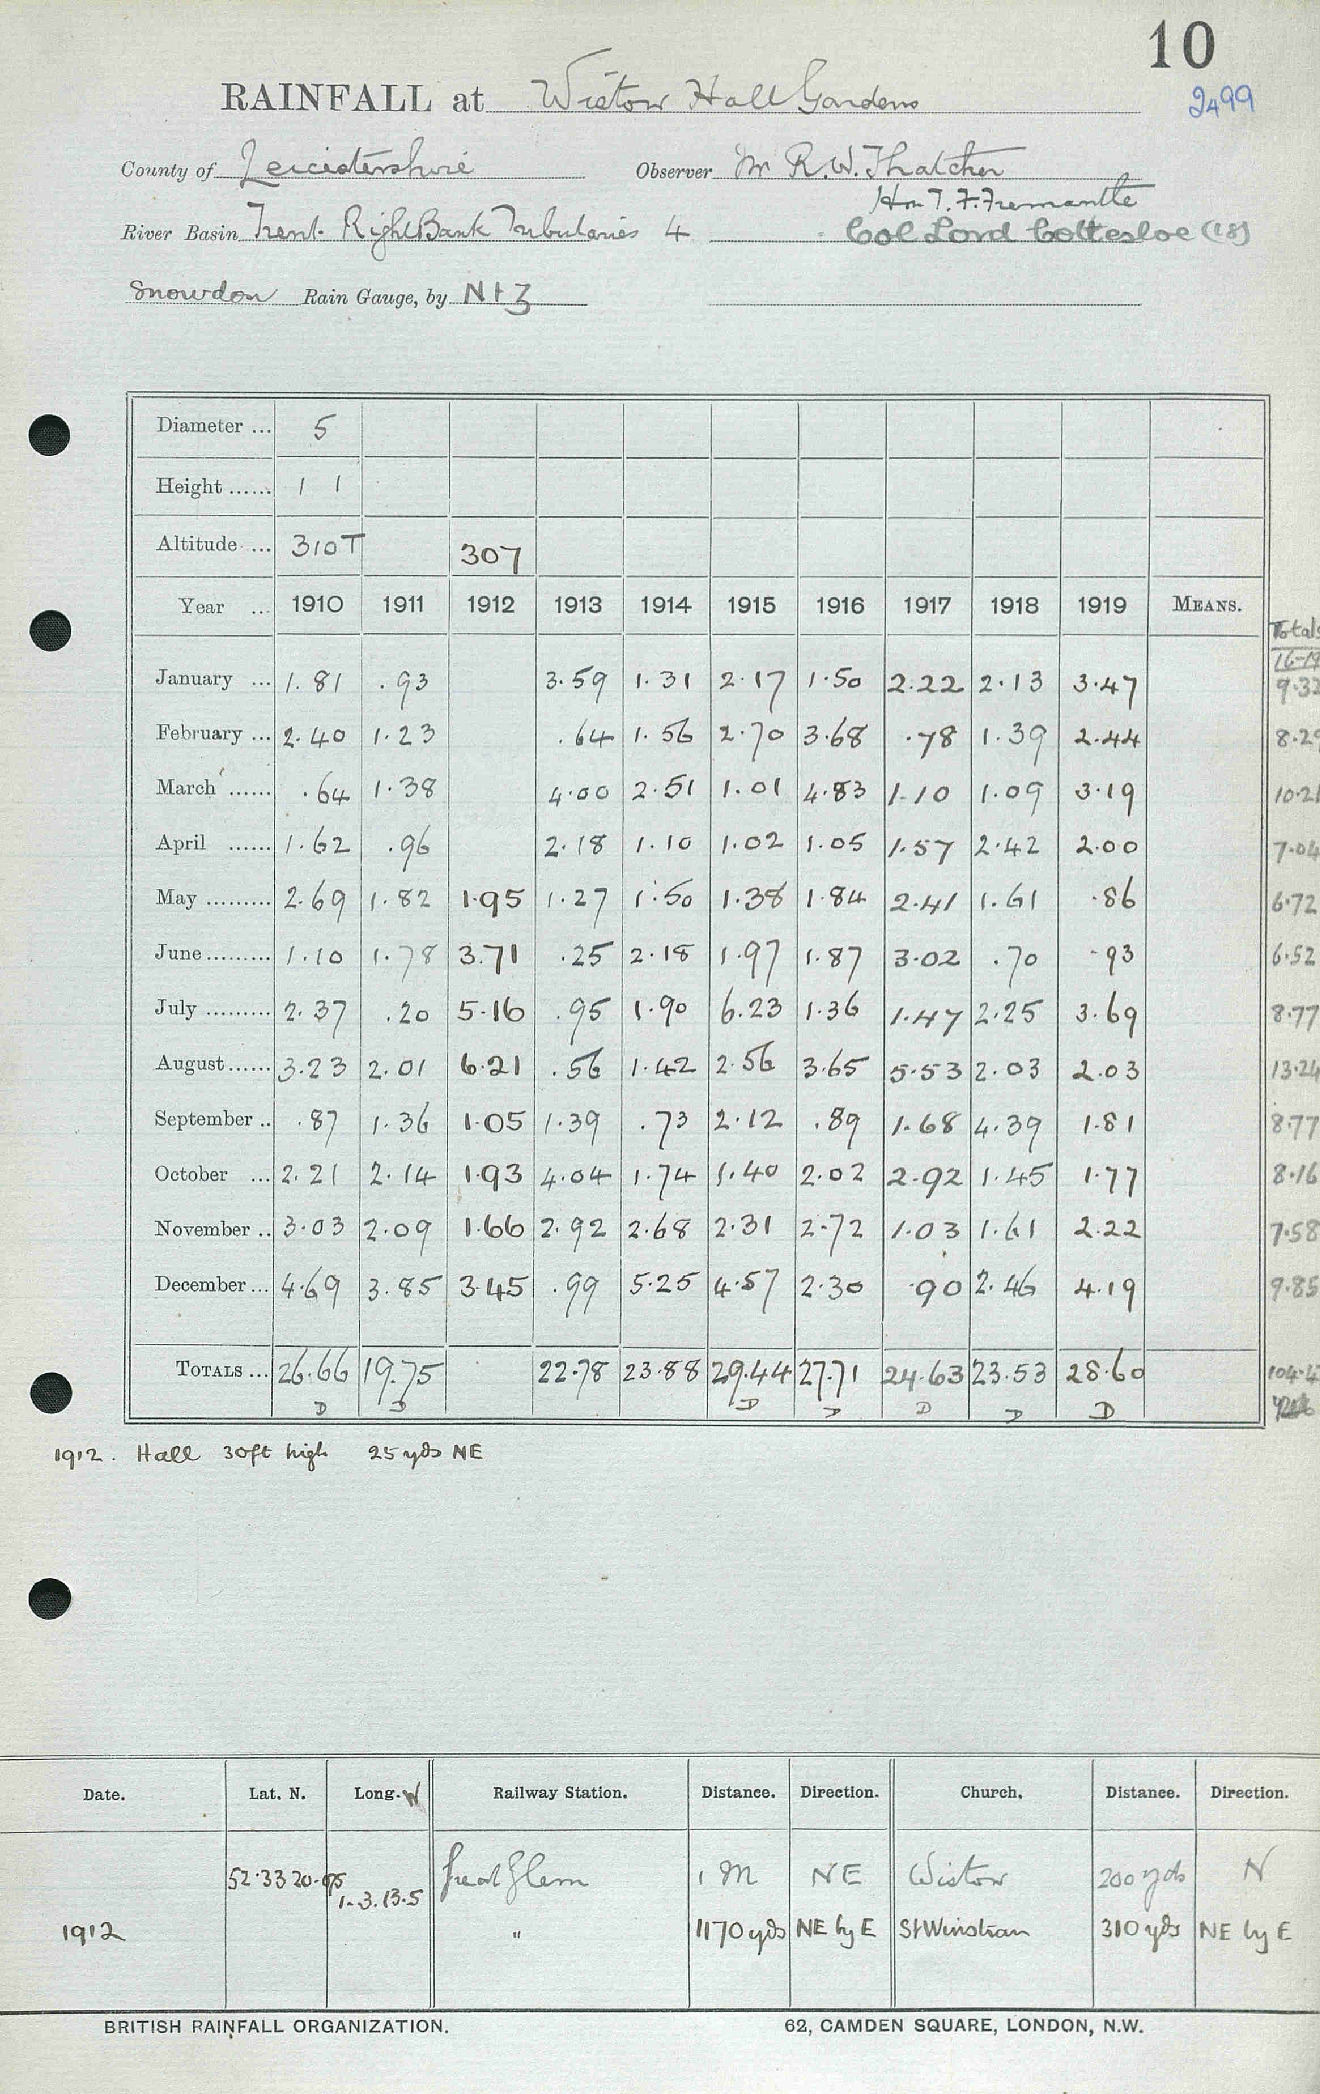 10
RAINFALL at Wistow Hall Gardens 2499
County of Leicestershire Observer Mr R.W. Thatcher
Hon T. F. Fremantle
River Basin Trent. Right Bank Tributaries 4 Col Lord Cottesloe (18)
Snowdon Rain Gauge, by N & Z
Diameter ... 5
Height ...... 1 1
Altitude ... 310T 307
Year ... 1910 1911 1912 1913 1914 1915 1916 1917 1918 1919 MEANS. Totals
16-19
January ... 1.81 .93 3.59 1.31 2.17 1.50 2.22 2.13 3.47 9.32
February ... 2.40 1.23 .64 1.56 2.70 3.68 .78 1.39 2.44 8.29
March ...... .64 1.38 4.00 2.51 1.01 4.83 1.10 1.09 3.19 10.21
April ...... 1.62 .96 2.18 1.10 1.02 1.05 1.57 2.42 2.00 7.04
May ......... 2.69 1.82 1.95 1.27 1.50 1.38 1.84 2.41 1.61 .86 6.72
June ......... 1.10 1.78 3.71 .25 2.18 1.97 1.87 3.02 .70 .93 6.52
July ......... 2.37 .20 5.16 .95 1.90 6.23 1.36 1.47 2.25 3.69 8.77
August ...... 3.23 2.01 6.21 .56 1.42 2.56 3.65 5.53 2.03 2.03 13.24
September .. .87 1.36 1.05 1.39 .73 2.12 .89 1.68 4.39 1.81 8.77
October ... 2.21 2.14 1.93 4.04 1.74 1.40 2.02 2.92 1.45 1.77 8.16
November .. 3.03 2.09 1.66 2.92 2.68 2.31 2.72 1.03 1.61 2.22 7.58
December ... 4.69 3.85 3.45 .99 5.25 4.57 2.30 .90 2.46 4.19 9.85
TOTALS ... 26.66 19.75 22.78 23.88 29.44 27.71 24.63 23.53 28.60 104.4
D D D D D D D
1912. Hall 30ft high 25 yds NE
Date. Lat. N. Long. W Railway Station. Distance. Direction. Church. Distance. Direction.
52.33 20.95 1.3.13.5 Great Glen 1 M NE Wistow 200 yds N
1912 " 1170 yds NE by E St Winstran 310 yds NE by E
BRITISH RAINFALL ORGANIZATION. 62, CAMDEN SQUARE, LONDON, N.W.